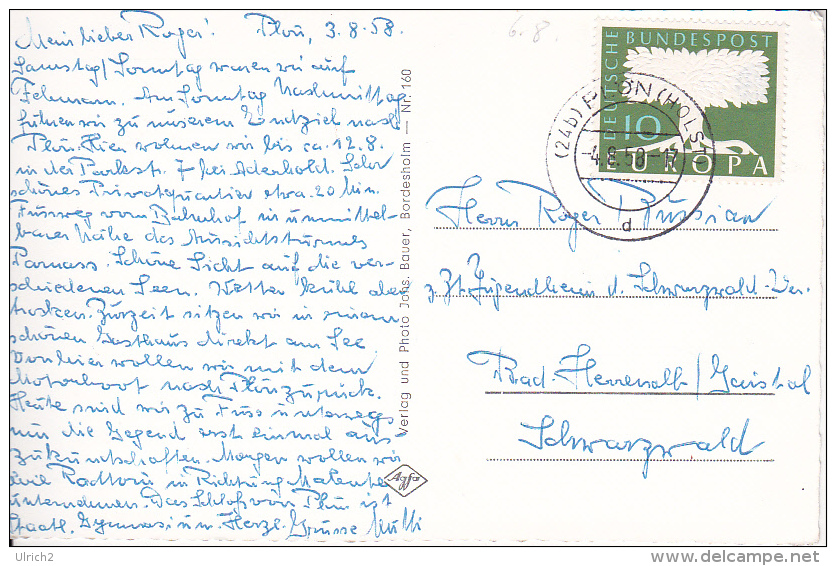 Mein lieber Roger! Plön, 3.8.58.
Samstag/Sonntag waren wir auf
Fehmarn. Am Sonntag Nachmittag
fuhren wir zu unserem Endziel nach
Plön. Hier wohnen wir bis ca. 12.8.
in der Parkstr. 7 bei Aderhold. Sehr
schönes Privatquartier etwa 20 Min.
Fussweg vom Bahnhof in unmittel-
barer Nähe des Aussichtsturmes
Parnass. Schöne Sicht auf die ver-
schiedenen Seen. Wetter kühl aber
trocken. Zurzeit sitzen wir in einem
schönen Gasthaus direkt am See
Von hier wollen wir mit dem
Motorboot nach Plön zurück.
Heute sind wir zu Fuss unterwegs
um die Gegend erst einmal aus-
zukundschaften. Morgen wollen wir
eine Radtour in Richtung Malente
unternehmen. Das Schloß von Plön ist
Staatl. Gymnasium. Herzl. Grüsse Mutti
Verlag und Photo Johs. Bauer, Bordesholm — Nr. 160
Agfa
6.8.
DEUTSCHE BUNDESPOST
10
EUROPA
(24b) PLÖN (HOLST)
-4.8.58-17
d
Herrn Roger Russian
z. Zt. Jugendheim d. Schwarzwald-Ver.
Bad-Herrenalb/Gaistal
Schwarzwald
Ulrich2
www.delcampe.net